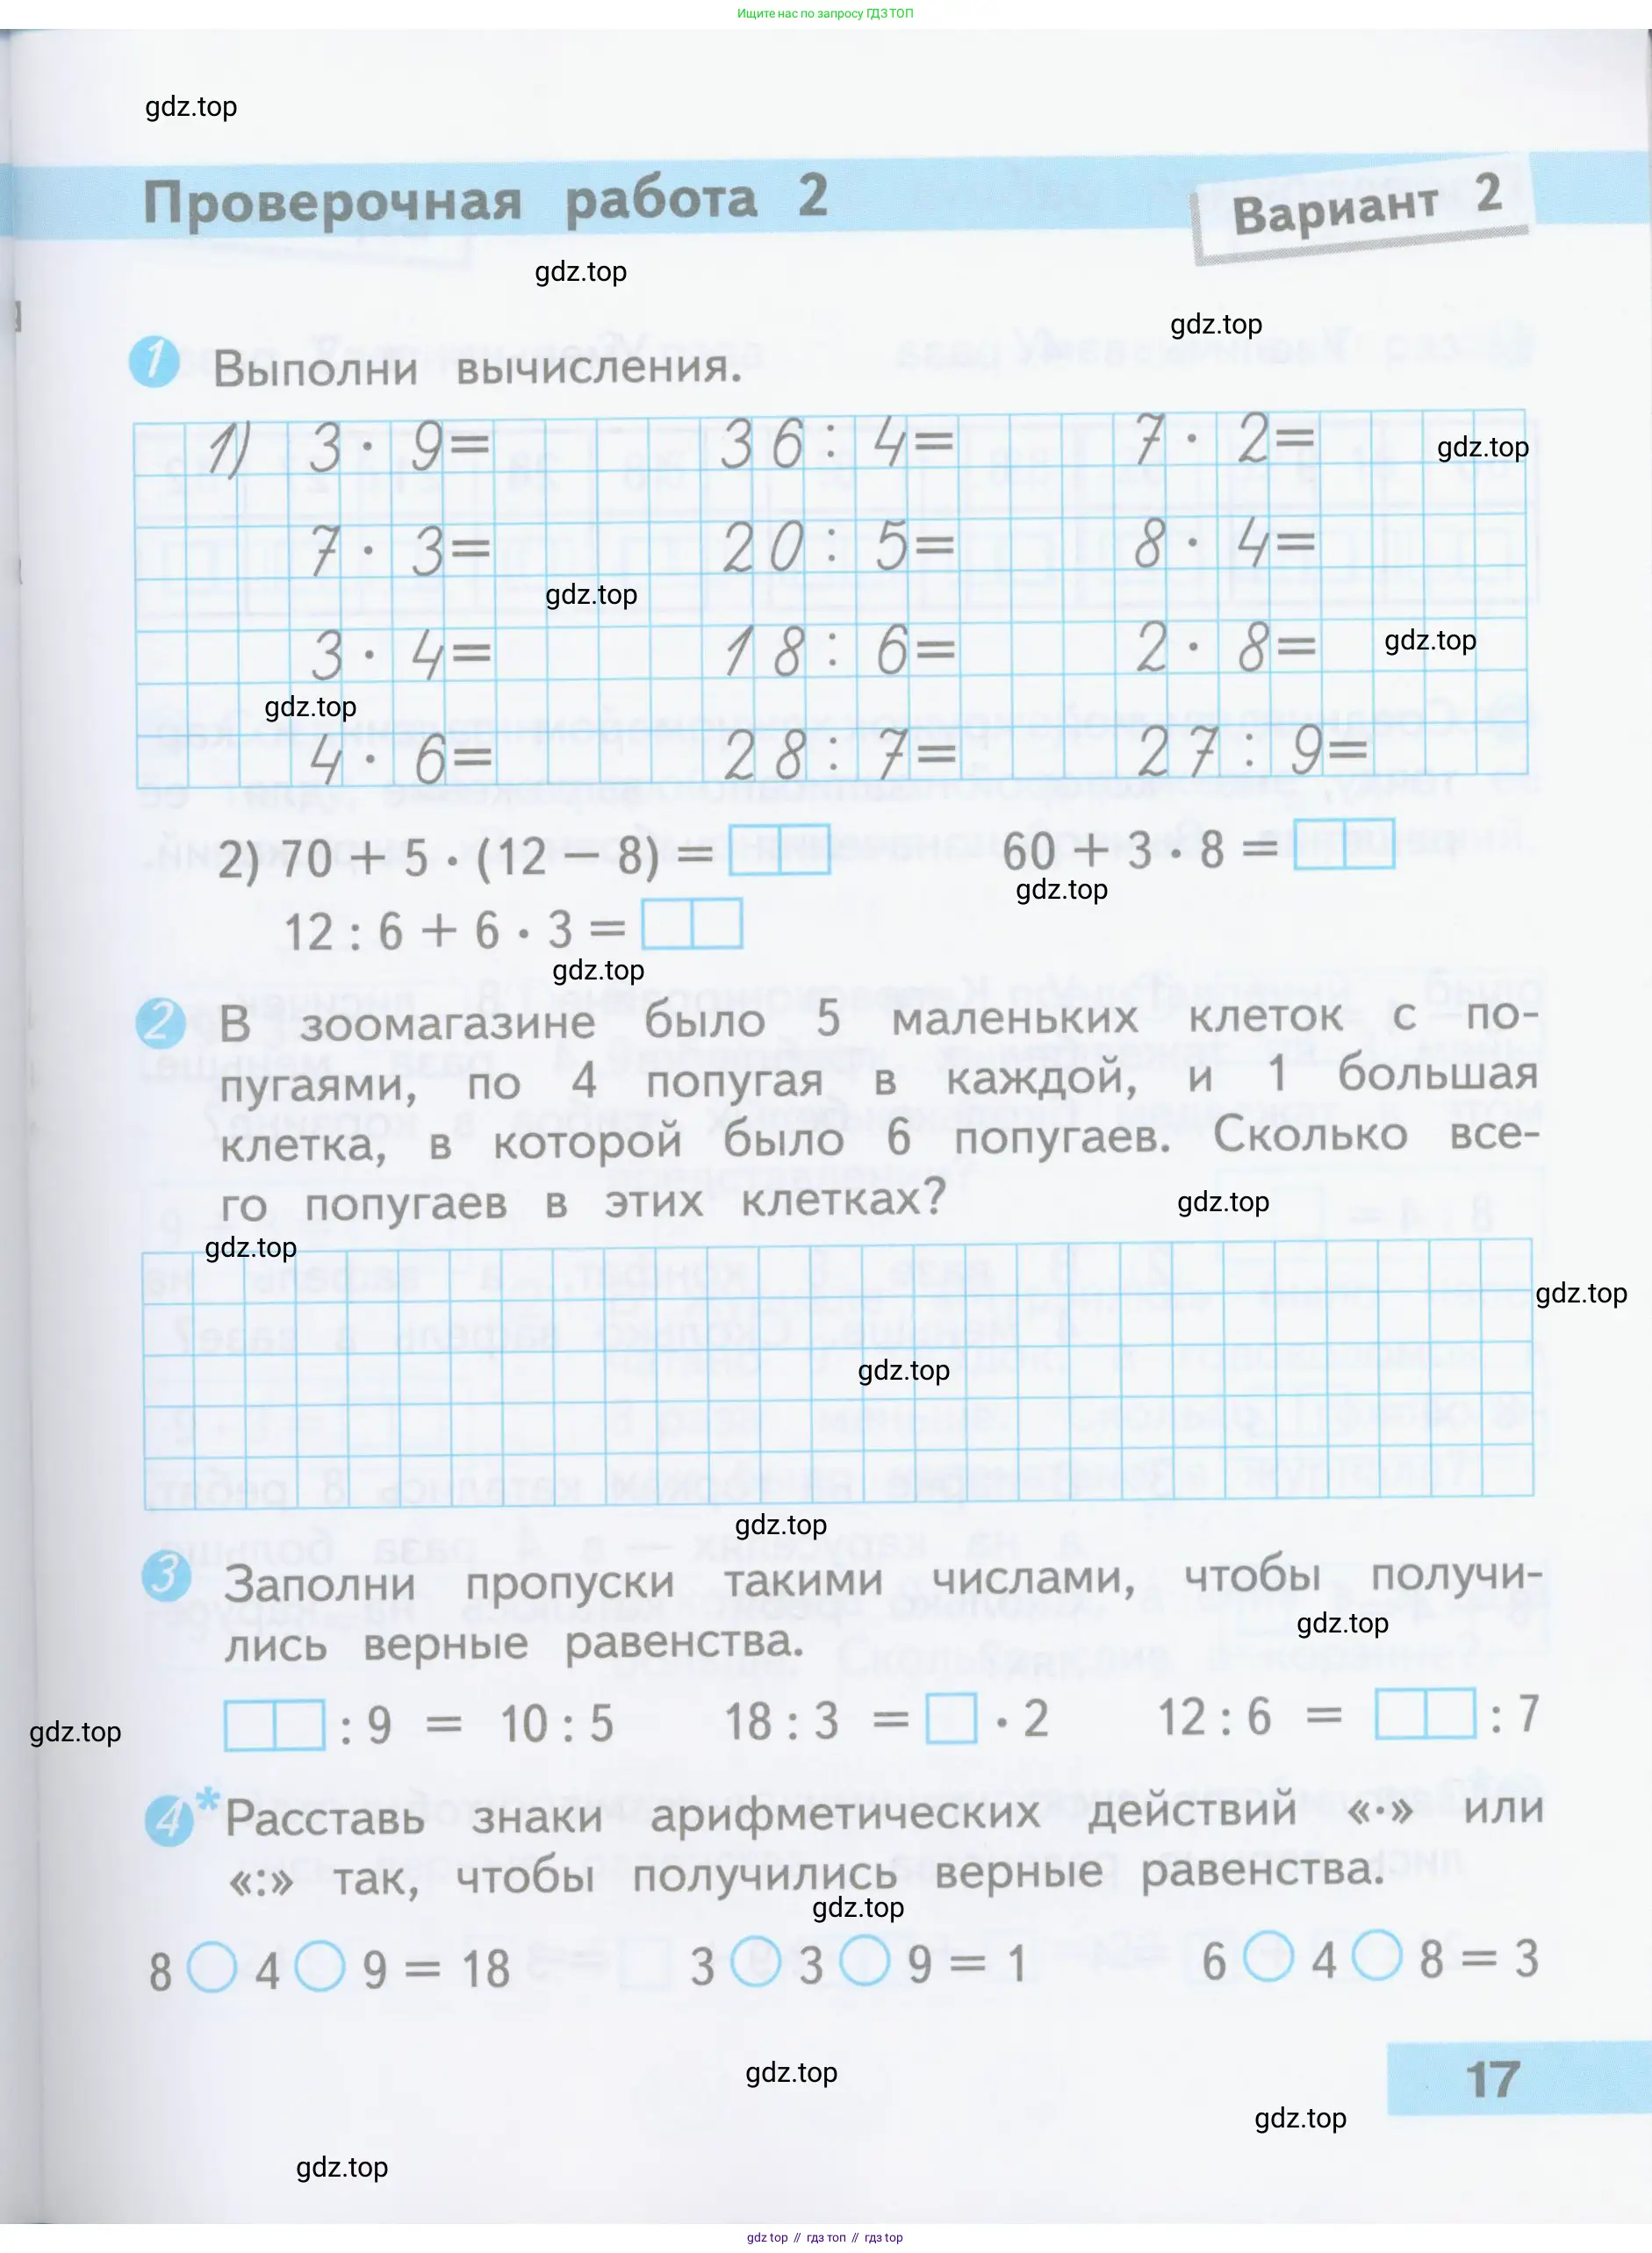 Ищите нас по запросу ГДЗ ТОП
gdz.top
Проверочная работа 2
Вариант 2
gdz.top
gdz.top
1 Выполни вычисления.
1) 3 · 9= 36 : 4= 7 · 2=
gdz.top
7 · 3= 20 : 5= 8 · 4=
gdz.top
3 · 4= 18 : 6= 2 · 8=
gdz.top
gdz.top
4 · 6= 28 : 7= 27 : 9=
2) 70 + 5 · (12 − 8) = 60 + 3 · 8 =
gdz.top
12 : 6 + 6 · 3 =
gdz.top
2 В зоомагазине было 5 маленьких клеток с по-
пугаями, по 4 попугая в каждой, и 1 большая
клетка, в которой было 6 попугаев. Сколько все-
го попугаев в этих клетках?
gdz.top
gdz.top
gdz.top
gdz.top
gdz.top
3 Заполни пропуски такими числами, чтобы получи-
лись верные равенства.
gdz.top
: 9 = 10 : 5 18 : 3 = · 2 12 : 6 = : 7
gdz.top
4* Расставь знаки арифметических действий «·» или
«:» так, чтобы получились верные равенства.
gdz.top
8 4 9 = 18 3 3 9 = 1 6 4 8 = 3
gdz.top
17
gdz.top
gdz.top
gdz top // гдз топ // гдз top